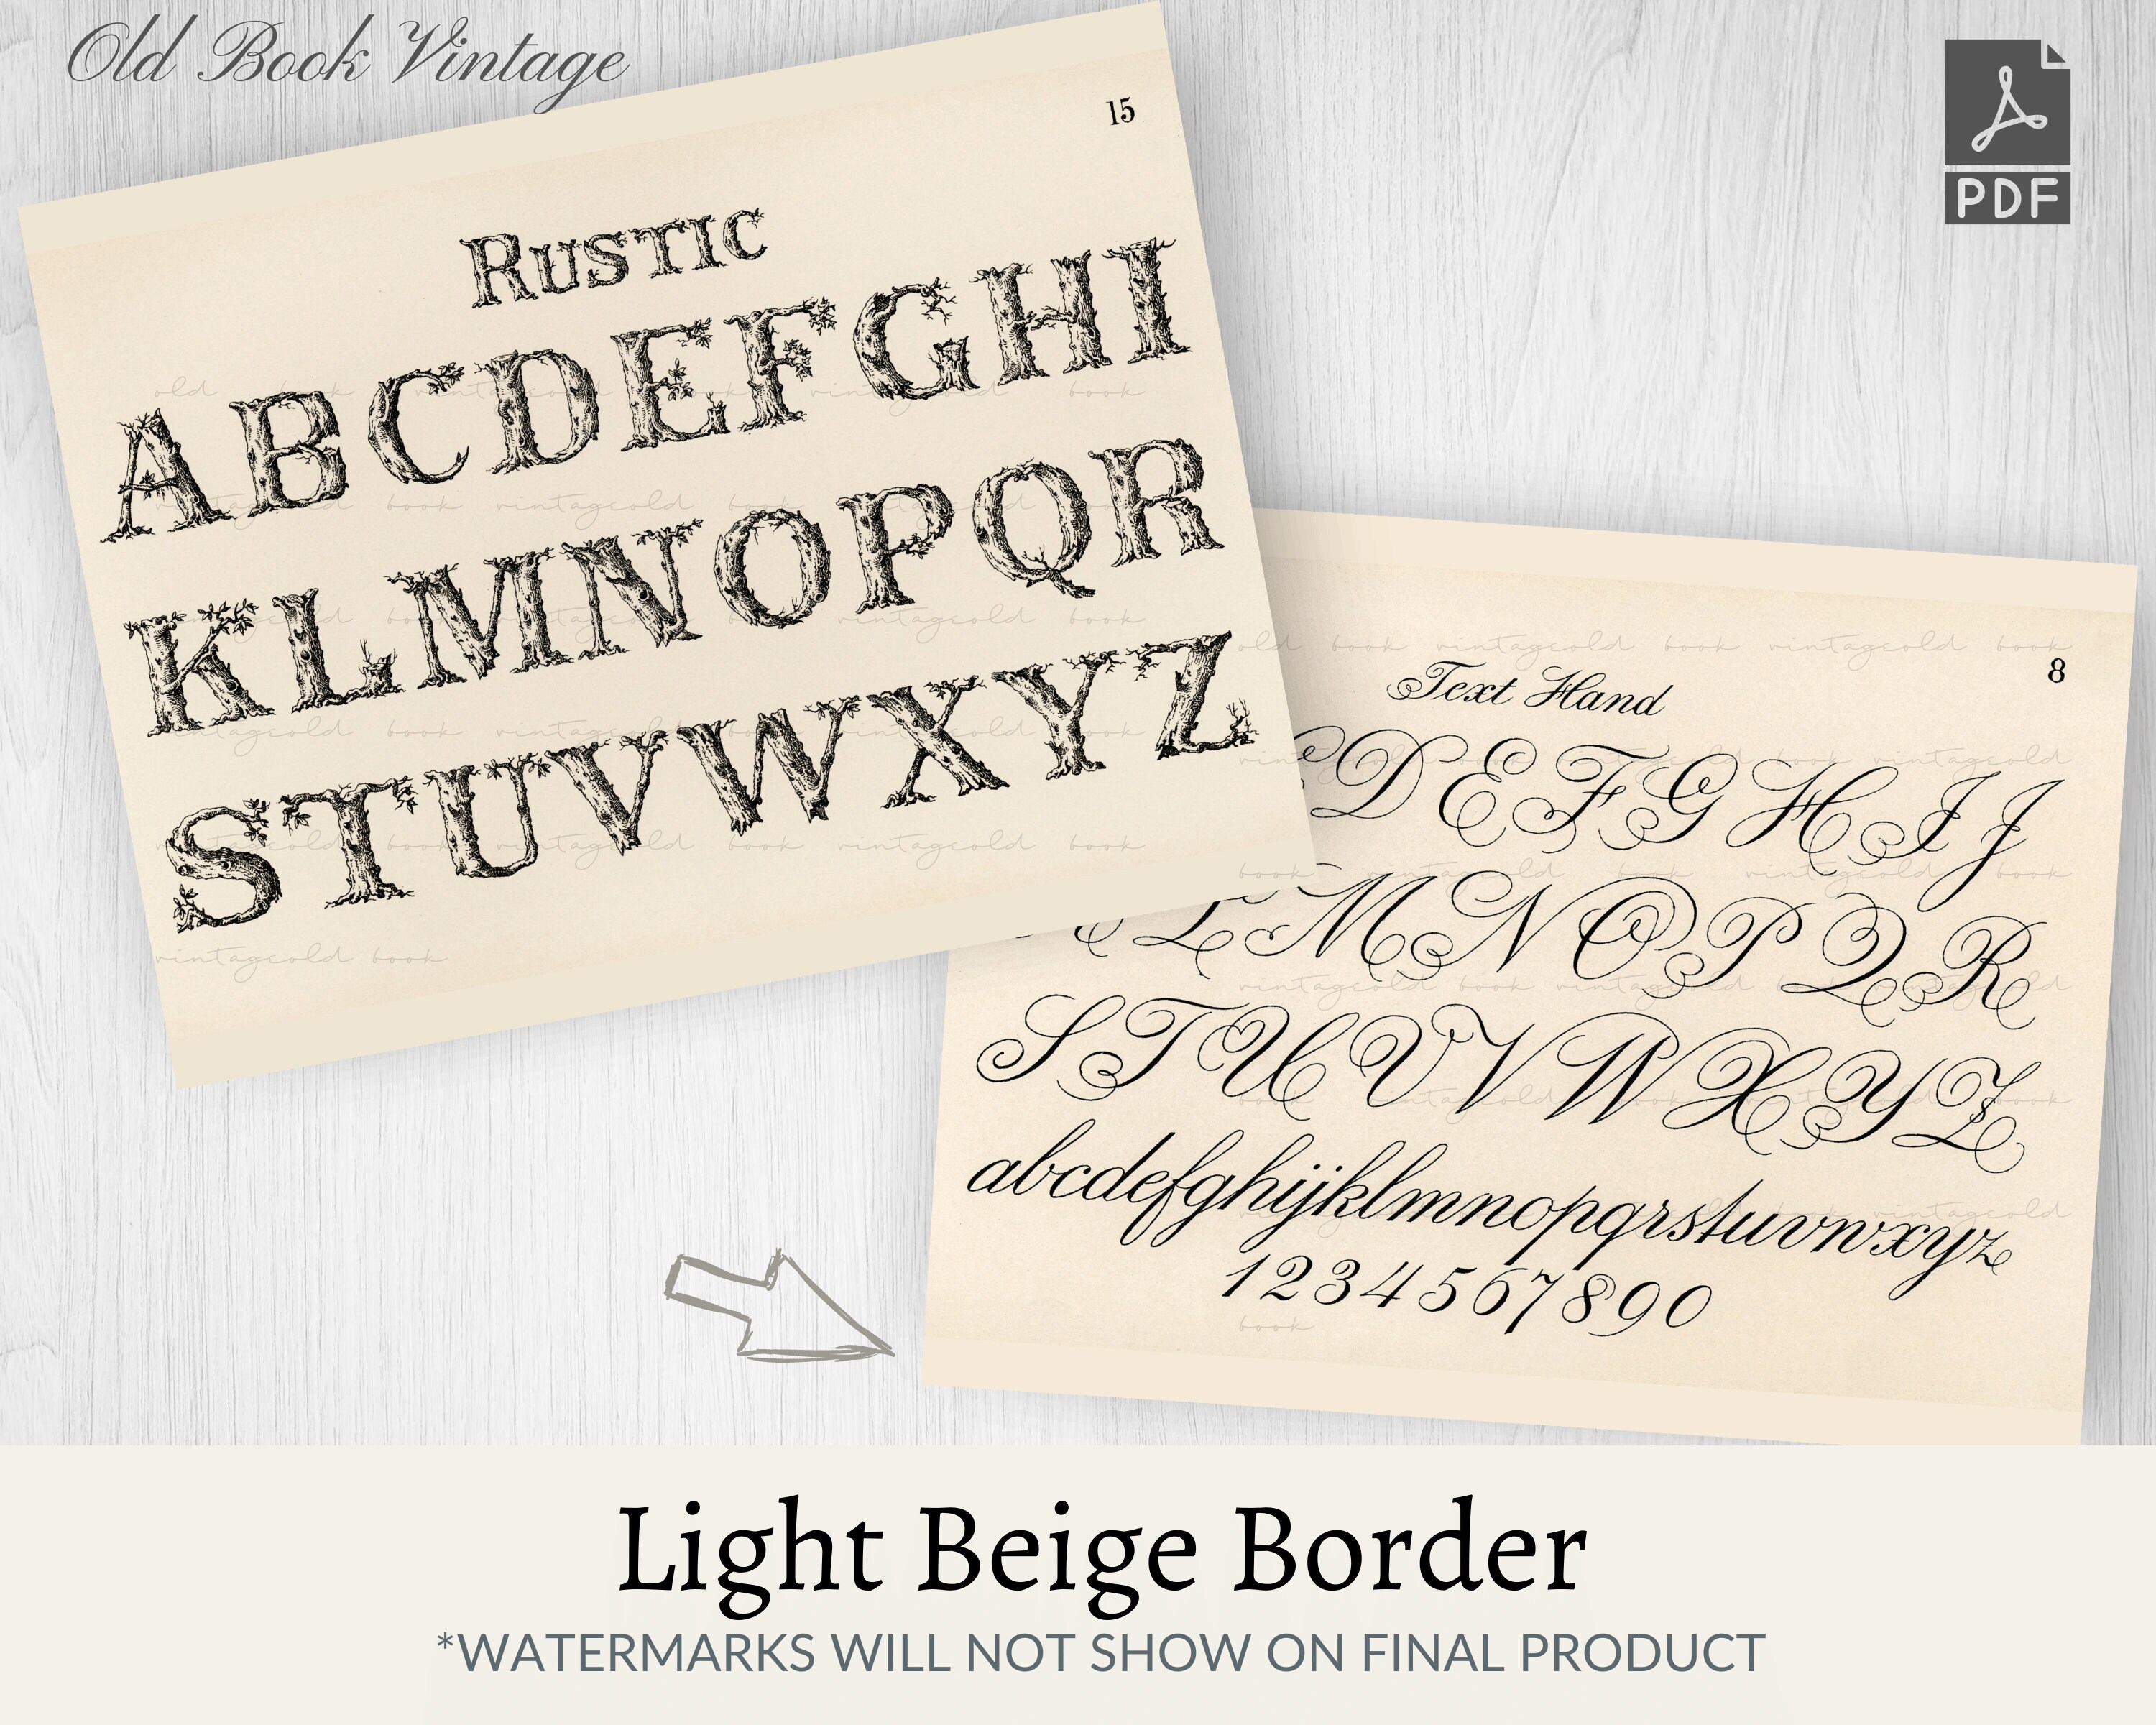 Old Book Vintage
PDF
15
RUSTIC
ABCDEFGHI
KLMNOPQR
STUVWXYZ
8
Text Hand
DEFGHIJ
LMNOPQR
STUVVWXYZ
abcdefghijklmnopqrstuvwxyz
1234567890
Light Beige Border
*WATERMARKS WILL NOT SHOW ON FINAL PRODUCT